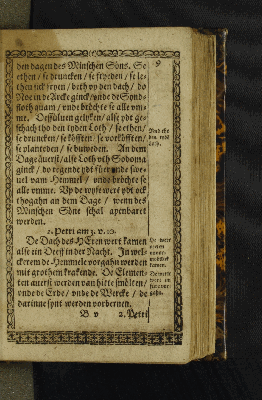 den dagen des Minschen Söns. Se
ethen / se druncken / se fryeden / se le-
then sick fryen / beth vp den dach / do
Noe in de Arcke ginck / vnde de Synd-
floth quam / vnde bröchte se alle vm-
me. Dessüluen gelyken / alse ydt ge-
schach tho den tyden Loth / se ethen /
se druncken / se köfften / se vorköfften /
se planteden / se buweden. An dem
Dage auerst / alse Loth vth Sodoma
ginck / do regende ydt füer vnde swe-
uel vam Hemmel / vnde bröchte se
alle vmme. Vp de wyse wert ydt ock
thogahn an dem Dage / wenn des
Minschen Söne schal apenbaret
werden.
2. Petri am 3. v. 10.
De Dach des HEren wert kamen
alse ein Deeff in der Nacht. In wel-
ckerem de Hemmele vorgahn werden
mit grothem krakende. De Elemen-
ten auerst werden van hitte smölten /
vnde de Erde / vnde de Wercke / de
darinne synt werden vorbernen.
B v
2. Petri